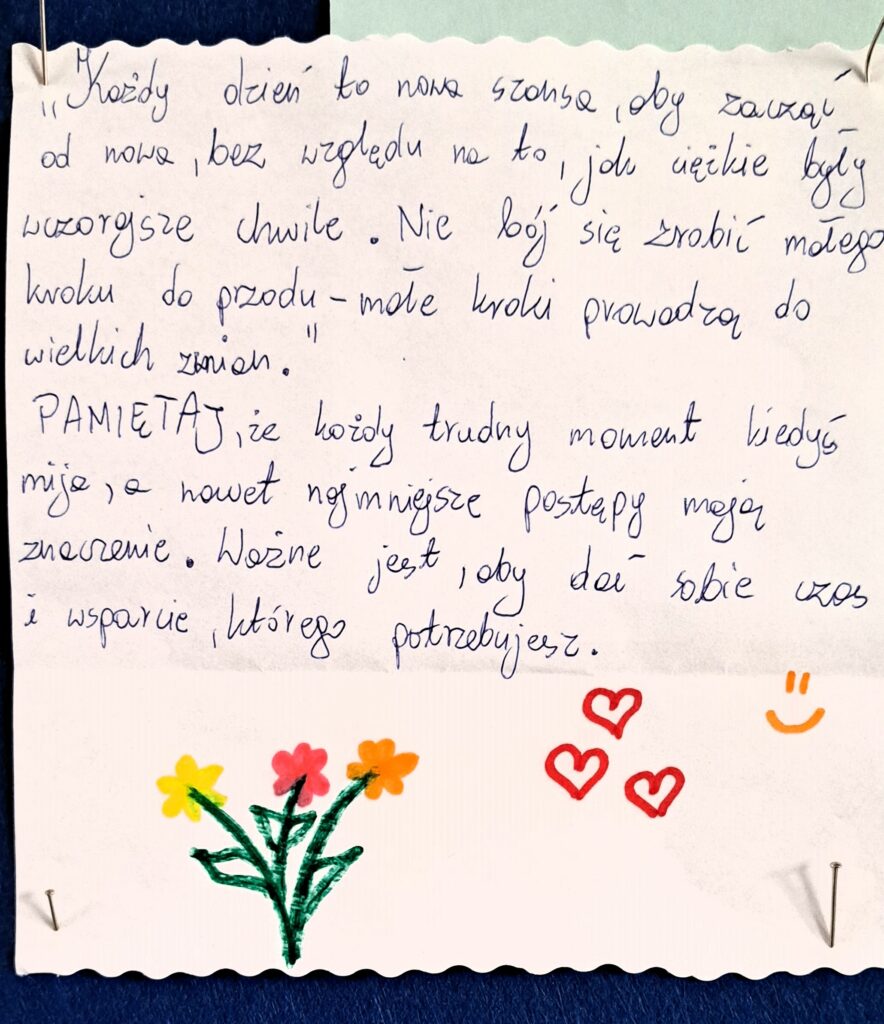 „Każdy dzień to nowa szansa, aby zacząć
od nowa, bez względu na to, jak ciężkie były
wczorajsze chwile. Nie bój się zrobić małego
kroku do przodu - małe kroki prowadzą do
wielkich zmian."
PAMIĘTAJ, że każdy trudny moment kiedyś
mija, a nawet najmniejsze postępy mają
znaczenie. Ważne jest, aby dać sobie czas
i wsparcie, którego potrzebujesz.